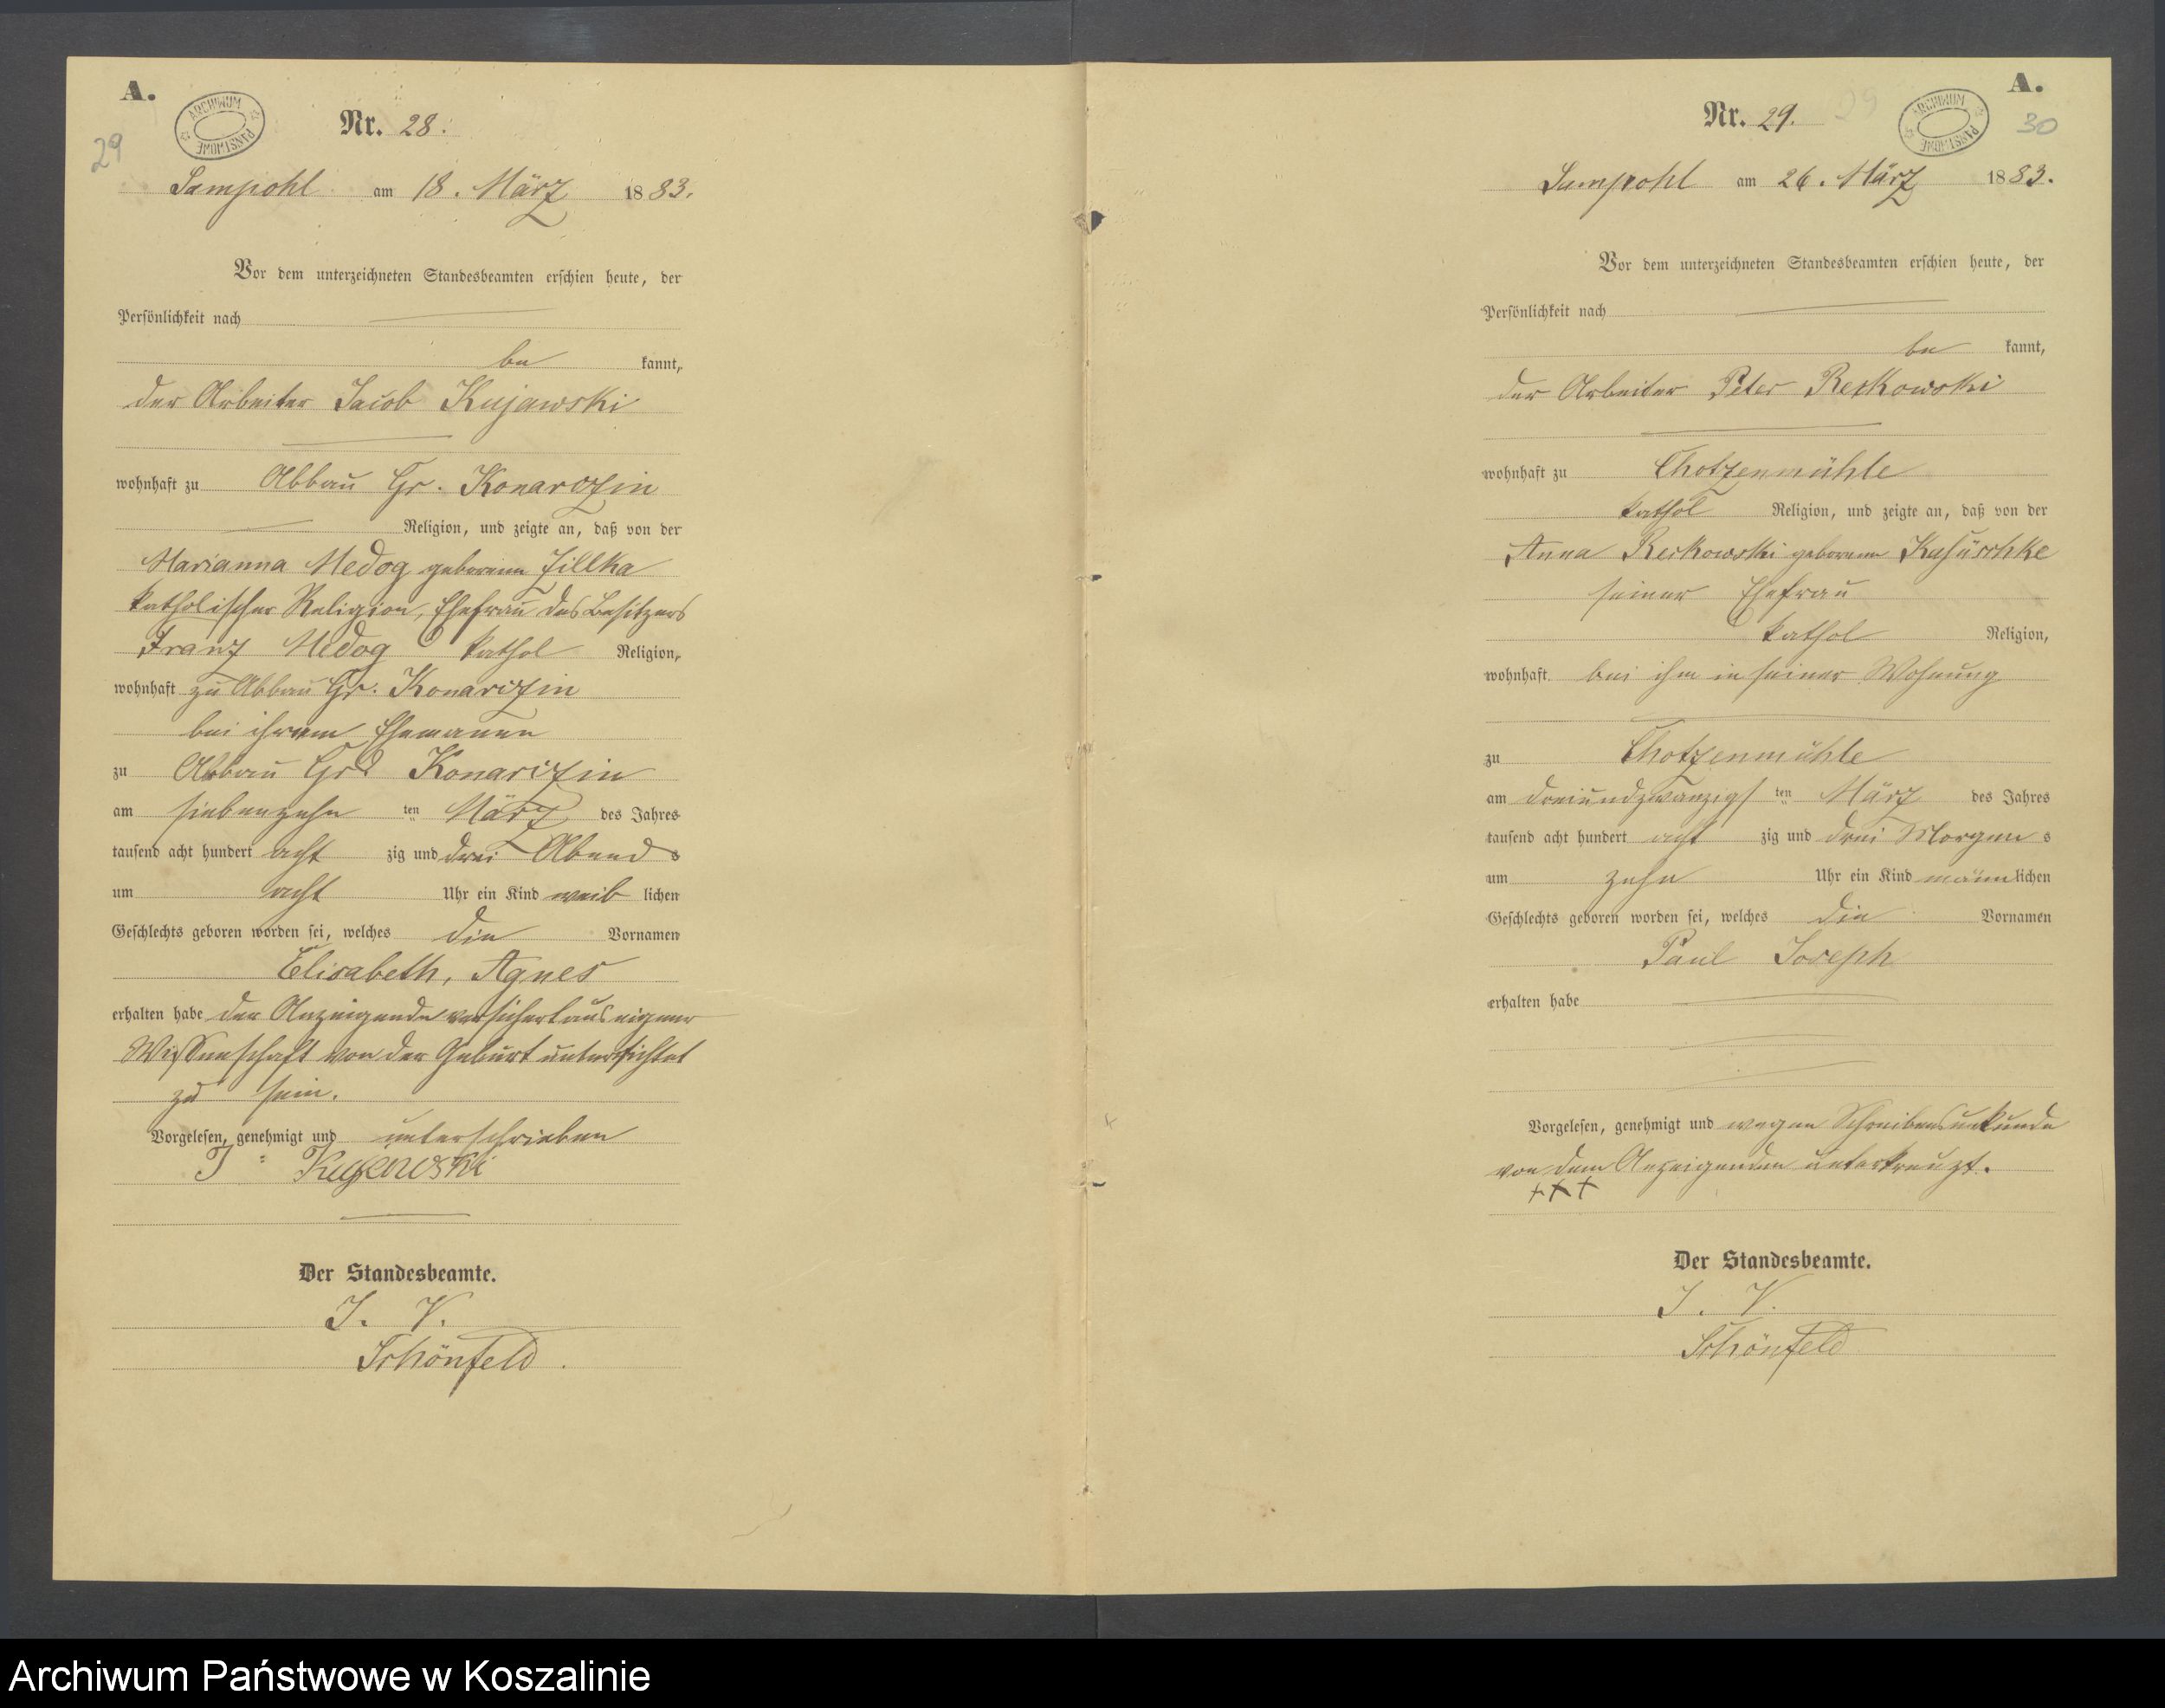 A.
ARCHIWUM PAŃSTWOWE
29
Nr. 28.
Sampohl am 18. März 1883.
Vor dem unterzeichneten Standesbeamten erschien heute, der
Persönlichkeit nach
be kannt,
der Arbeiter Jacob Kujawski
wohnhaft zu Abbau Gr. Konarczin
Religion, und zeigte an, daß von der
Marianna Medog geborenen Zillka
katholischer Religion, Ehefrau des Besitzers
Franz Medog kathol Religion,
wohnhaft zu Abbau Gr. Konarczin
bei ihrem Ehemanne
zu Abbau Gr. Konarczin
am siebenzehn ten März des Jahres
tausend acht hundert acht zig und drei Abend s
um acht Uhr ein Kind weib lichen
Geschlechts geboren worden sei, welches die Vornamen
Elisabeth, Agnes
erhalten habe der Anzeigende versichert aus eigener
Wissenschaft von der Geburt unterrichtet
zu sein.
Vorgelesen, genehmigt und unterschrieben
J Kujawski
Der Standesbeamte.
J. V.
Schönfeld.
A.
ARCHIWUM PAŃSTWOWE
30
29
Nr. 29.
Sampohl am 26. März 1883.
Vor dem unterzeichneten Standesbeamten erschien heute, der
Persönlichkeit nach
be kannt,
der Arbeiter Peter Reskowski
wohnhaft zu Chotzenmühle
kathol Religion, und zeigte an, daß von der
Anna Reskowski geborenen
seiner Ehefrau
kathol Religion,
wohnhaft bei ihm in seiner Wohnung
zu Chotzenmühle
am dreiundzwanzigs ten März des Jahres
tausend acht hundert acht zig und drei Morgen s
um zehn Uhr ein Kind männ lichen
Geschlechts geboren worden sei, welches die Vornamen
Paul Joseph
erhalten habe
Vorgelesen, genehmigt und wegen Schreibensunkunde
von dem Anzeigenden unterkreuzt.
+++
Der Standesbeamte.
J. V.
Schönfeld
Archiwum Państwowe w Koszalinie